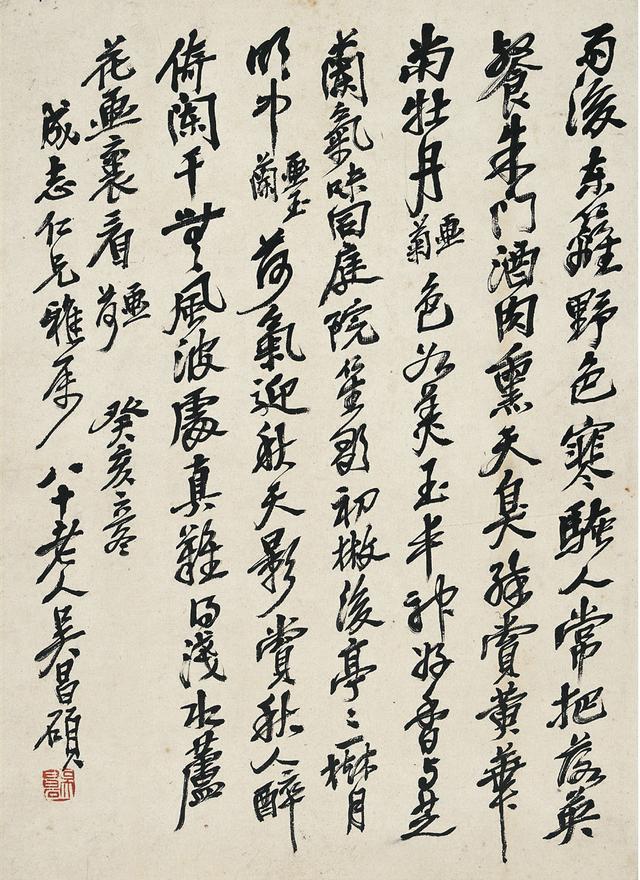 雨後东籬野色寒騷人常把落英
餐朱門酒肉熏天臭除賞黃華
尚牡丹畫菊色如美玉丰神好香與芝
蘭氣味同庭院笙歌初撤後亭亭一樹月
明中畫玉蘭荷氣迎秋天影賞秋人醉
倚闌干無風波處真難得淺水蘆
花畫裏看畫荷癸亥立冬
成志仁兄雅屬八十老人吳昌碩